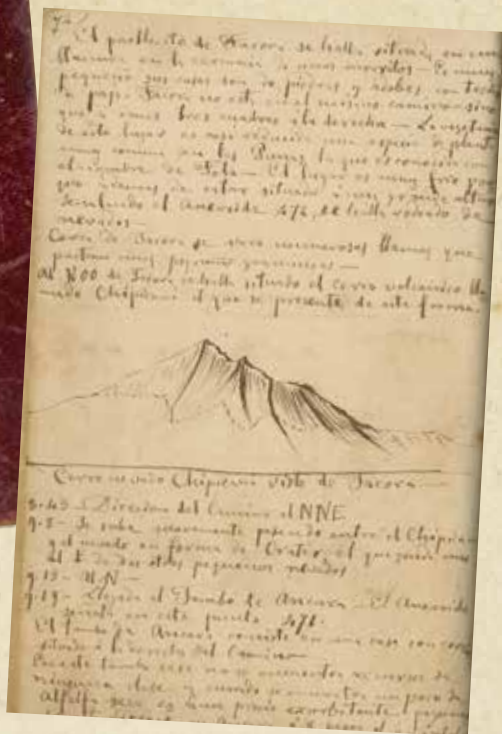 El pueblecito de Tacora se halla situado en una
llanura en la cercanía de unos cerritos — Es muy
pequeño sus casas son de piedras y adobes, con techo
de paja. Tacora no está en el mismo camino sino
que a unas tres cuadras a la derecha — La vegetación
de este lugar es una especie de planta
muy común en las Punas la que es conocida con
el nombre de Tola — El lugar es muy frío por
que además de estar situado a una grande altura
señalando el aneroide 476, se halla rodeado de
nevados —
Cerca de Tacora se ven numerosas llamas que
pastan unas pequeñas gramíneas —
Al NOO de Tacora se halla situado el cerro volcánico lla
mado Chipicani el que se presenta de esta forma.
Cerro nevado Chipicani visto de Tacora —
8.43 — Direccion del Camino al NNE
9.8 — Se sube suavemente pasando entre el Chipicani
y el nevado en forma de Crater, el que queda
al E de dos otros pequeños nevados
9.13 — N.N —
9.19 — Llegada al Tambo de Ancara — El Aneroide
señala en este punto 471.
El tambo de Ancara consiste en una casa con corral
situada a la derecha del Camino
En este tambo casi no se encuentra recursos de
ninguna clase y cuando se encuentra un poco de
Alfalfa pero es a un precio exorbitante